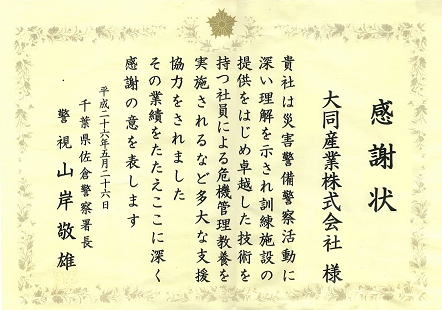 感謝状
大同産業株式会社 様
貴社は災害警備警察活動に
深い理解を示され訓練施設の
提供をはじめ卓越した技術を
持つ社員による危機管理教養を
実施されるなど多大な支援
協力をされました
その業績をたたえここに深く
感謝の意を表します
平成二十六年五月二十六日
千葉県佐倉警察署長
警視 山岸敬雄